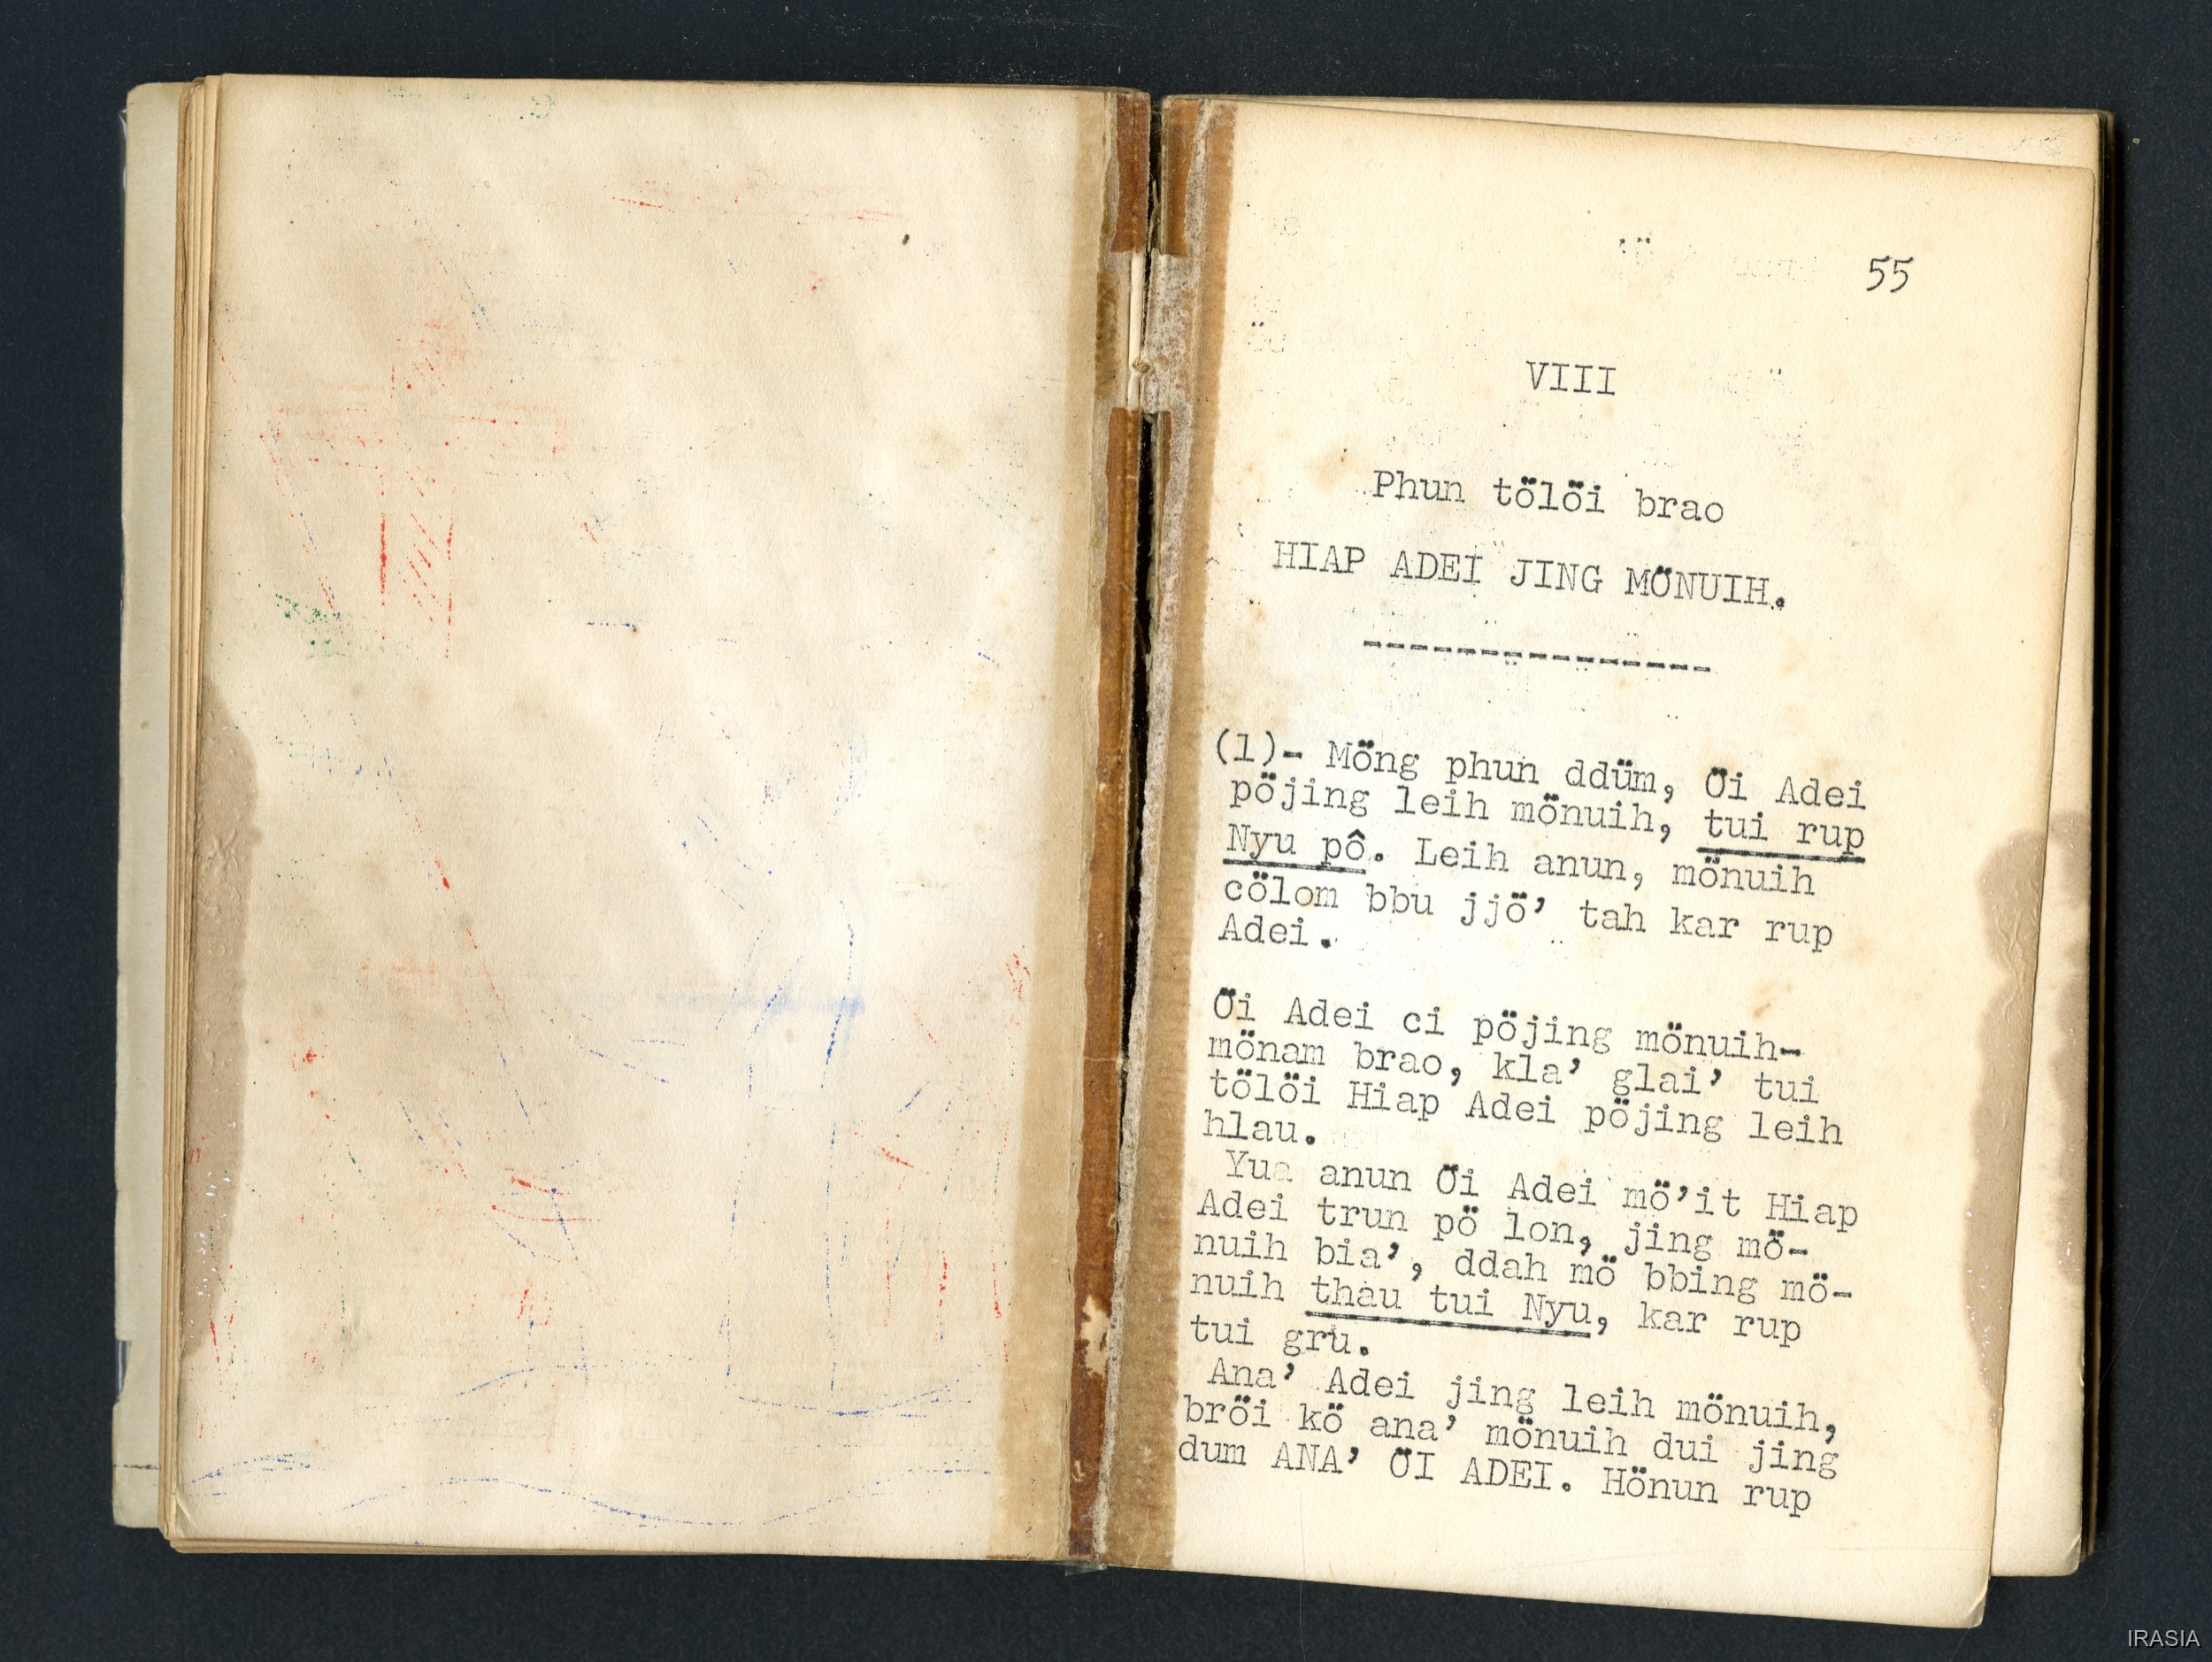 55
VIII
Phun tölöi brao
HIAP ADEI JING MÖNUIH.
(1)- Möng phun ddüm, Öi Adei
pöjing leih mönuih, tui rup
Nyu pô. Leih anun, mönuih
cölom bbu jjö’ tah kar rup
Adei.
Öi Adei ci pöjing mönuih-
mönam brao, kla’ glai’ tui
tölöi Hiap Adei pöjing leih
hlau.
Yua anun Öi Adei mö’it Hiap
Adei trun pö lon, jing mö-
nuih bia’, ddah mö bbing mö-
nuih thau tui Nyu, kar rup
tui gru.
Ana’ Adei jing leih mönuih,
bröi kö ana’ mönuih dui jing
dum ANA’ ÖI ADEI. Hönun rup
IRASIA